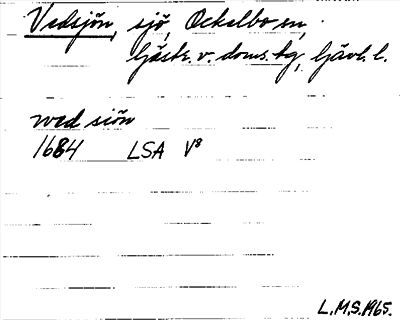 Vedsjön, sjö, Ockelbo sn,
Gästr. v. doms. tg, Gävl. l.
wed siön
1684 LSA V8
L.M.S. 1965.